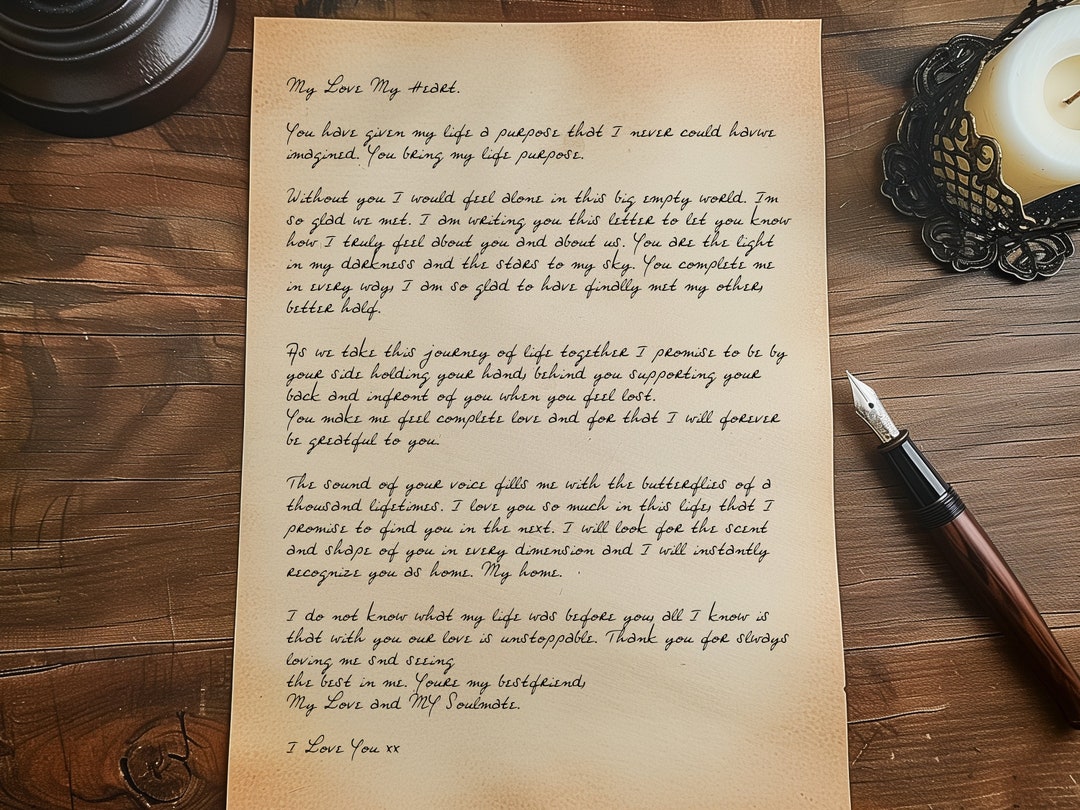 My Love My Heart.
You have given my life a purpose that I never could havwe
imagined. You bring my life purpose.
Without you I would feel alone in this big empty world. Im
so glad we met. I am writing you this letter to let you know
how I truly feel about you and about us. You are the light
in my darkness and the stars to my sky. You complete me
in every way, I am so glad to have finally met my other,
better half.
As we take this journey of life together I promise to be by
your side holding your hand, behind you supporting your
back and infront of you when you feel lost.
You make me feel complete love and for that I will forever
be greatful to you.
The sound of your voice fills me with the butterflies of a
thousand lifetimes. I love you so much in this life, that I
promise to find you in the next. I will look for the scent
and shape of you in every dimension and I will instantly
recognize you as home. My home.
I do not know what my life was before you, all I know is
that with you our love is unstoppable. Thank you for slways
loving me snd seeing
the best in me. Youre my bestfriend,
My Love and MY Soulmate.
I Love You xx